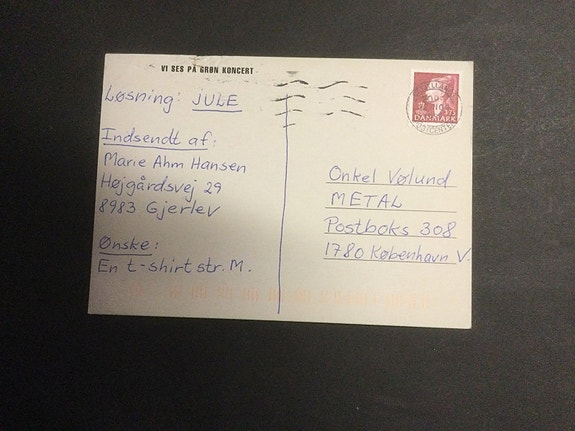 VI SES PÅ GRØN KONCERT
Løsning: JULE
Indsendt af:
Marie Ahm Hansen
Højgårdsvej 29
8983 Gjerlev
Ønske:
En t-shirt str. M.
DANMARK
Onkel Vølund
METAL
Postboks 308
1780 København V.